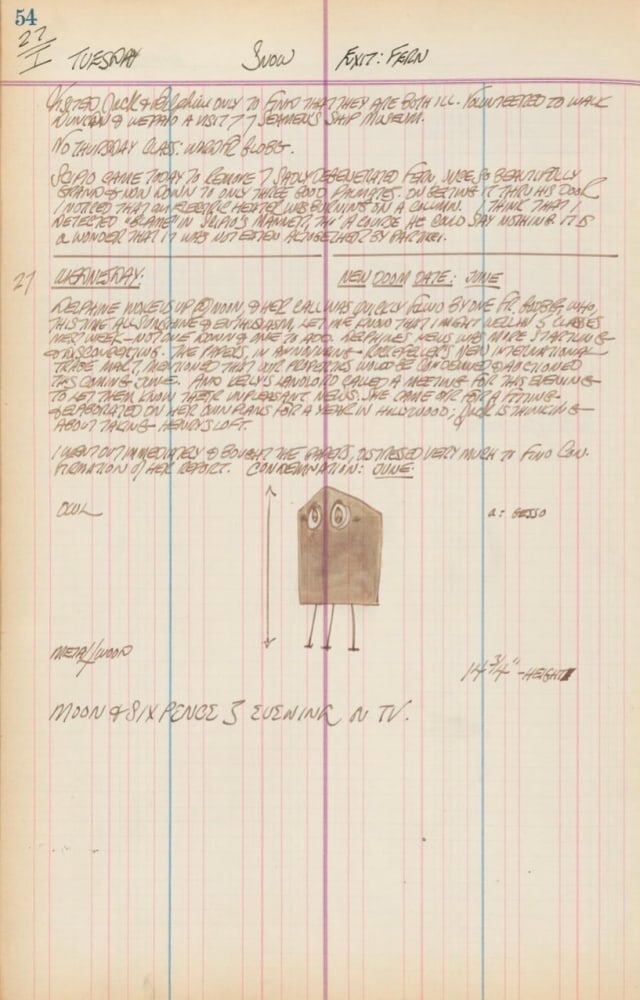 54
27
I TUESDAY SNOW EXIT: FERN
VISITED Jack & Delphine ONLY TO FIND THAT THEY ARE BOTH ILL. VOLUNTEERED TO WALK
DUNCAN & WE PAID A VISIT SEAMEN'S SHIP MUSEUM.
NO THURSDAY CLASS:
SCIPIO CAME TODAY TO REMOVE SADLY DEGENERATED FERN, ONCE SO BEAUTIFULLY
GRAND & NOW DOWN TO ONLY THREE GOOD PALMATES. ON GETTING IT THRU HIS DOOR
I NOTICED THAT AN ELECTRIC HEATER WAS BURNING ON A COLUMN. I THINK THAT I
DETECTED BLAME IN SCIPIO'S MANNER, THO' A COURSE HE COULD SAY NOTHING. IT IS
A WONDER THAT IT WAS NOT EATEN ALTOGETHER BY
27 WEDNESDAY: NEW DOOM DATE: JUNE
DELPHINE WOKE US UP @ NOON, & HER CALL WAS QUICKLY FOLL'D BY ONE FR. WHO,
THIS TIME ALL SUNSHINE & ENTHUSIASM, LET ME KNOW THAT I MIGHT WELL HV 5 CLASSES
NEXT WEEK—NOT ONE DOWN & ONE TO ADD. DELPHINE'S NEWS WAS MORE STARTLING
& DISCONCERTING. THE PAPERS, IN ANNOUNCING ROCKEFELLER'S NEW INTERNATIONAL
TRADE MART, MENTIONED THAT OUR PROPERTIES WOULD BE CONDEMNED & AUCTIONED
THIS COMING JUNE. AND KELLY'S LANDLORD CALLED A MEETING FOR THIS EVENING
TO LET THEM KNOW THEIR UNPLEASANT NEWS. SHE CAME OVER FOR A FITTING
& ELABORATED ON HER OWN PLANS FOR A YEAR IN HOLLYWOOD; Jack IS THINKING
ABOUT TAKING HENRY'S LOFT.
I WENT OUT IMMEDIATELY & BOUGHT THE PAPERS, DISTRESSED VERY MUCH TO FIND CON-
FIRMATION of HER REPORT. CONDEMNATION: JUNE.
OWL a: GESSO
METAL/WOOD
14 3/4" - HEIGHT
MOON & SIX PENCE EVENING ON TV.